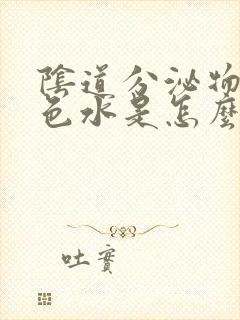 陰道分泌物
色水是怎麼
吐實